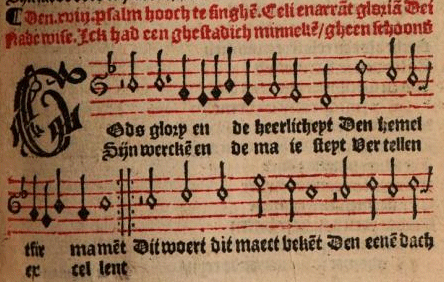 ¶ Den .xviij. psalm hooch te singhē. Celi enarrāt gloriā Dei
Nade wise. Ick had een ghestadich minnekē / gheen schoons
GOds glory en de heerlicheyt Den hemel
Sijn werckē en de ma ie steyt Ver tellen
tfir mamēt Dit woert dit maect bekēt Den eenē dach
ex cel lent